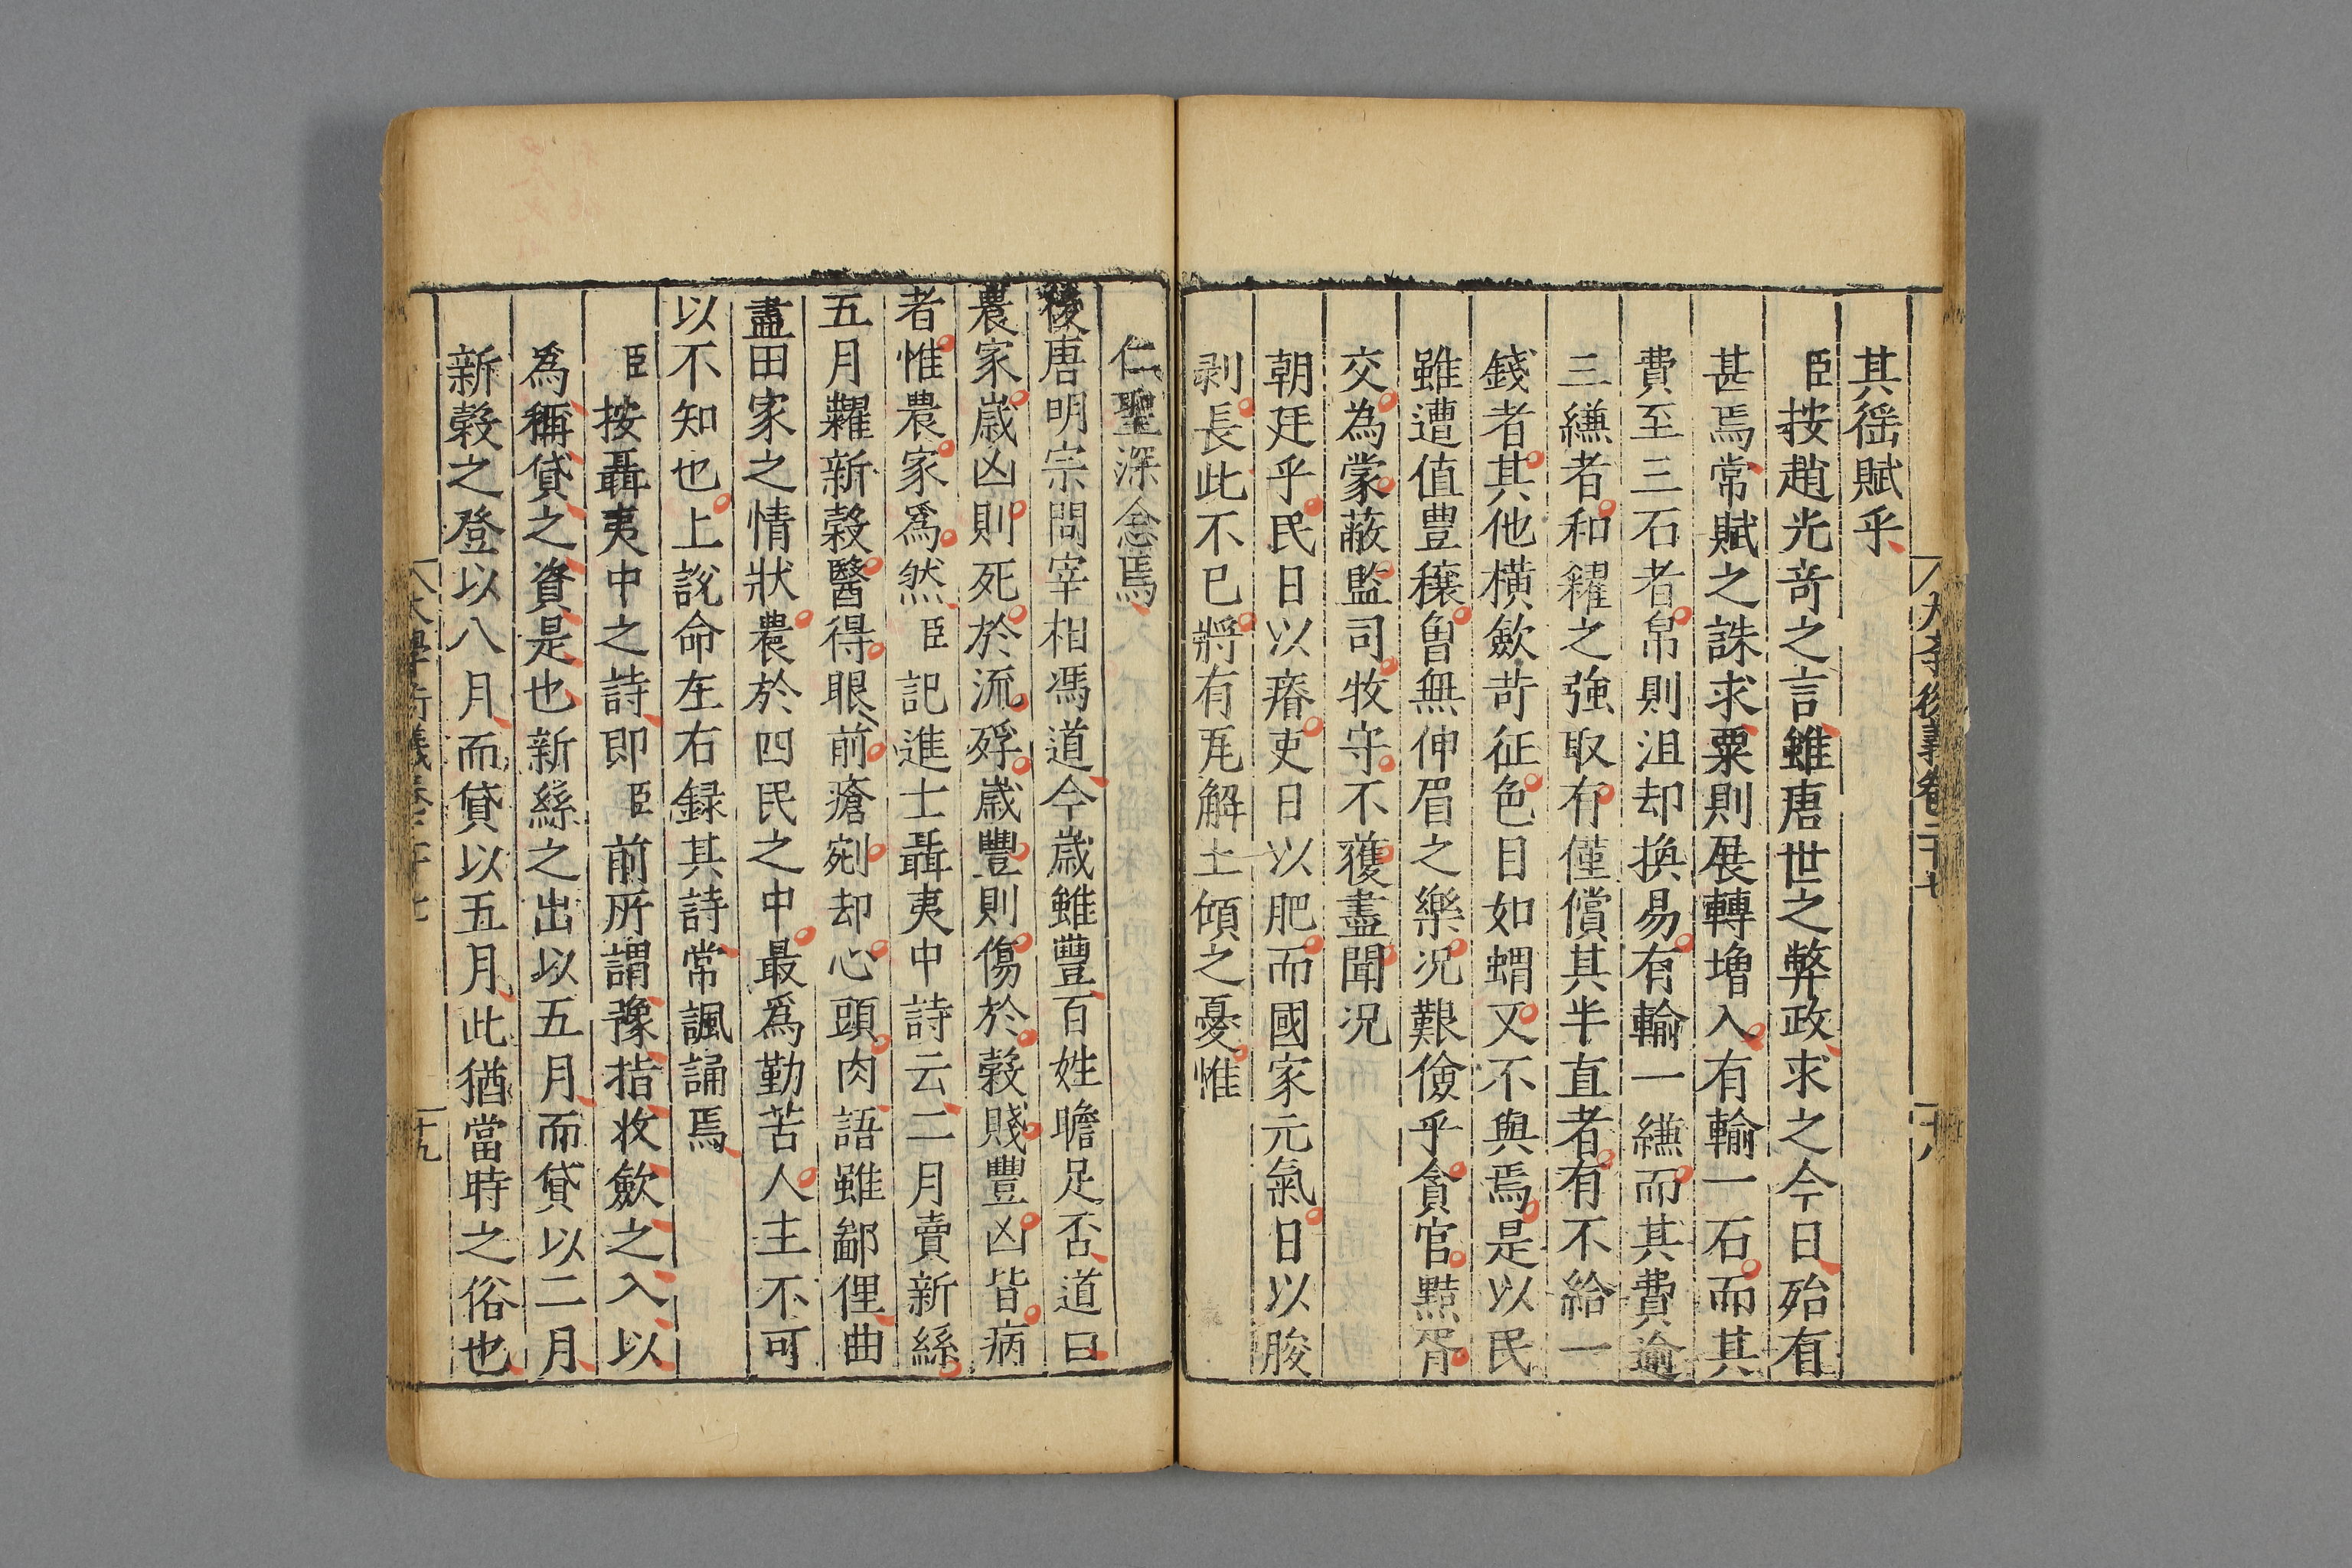 其徭賦乎
臣按趙光奇之言雖唐世之弊政求之今日殆有
甚焉常賦之誅求粟則展轉増入有輸一石而其
費至三石者帛則沮却換易有輸一縑而其費逾
三縑者和糴之強取有僅償其半直者有不給一
錢者其他橫歛苛征色目如蝟又不與焉是以民
雖遭值豊穰曾無伸眉之樂況艱儉乎貪官黠胥
交為蒙蔽監司牧守不獲盡聞況
朝廷乎民日以瘠吏日以肥而國家元氣日以朘
剥長此不已將有瓦解土傾之憂惟
大學衍義卷二十七
十八
仁聖深念焉
後唐明宗問宰相馮道今歳雖豐百姓瞻足否道曰
農家歳凶則死於流殍歳豐則傷於榖賤豐凶皆病
者惟農家爲然臣記進士聶夷中詩云二月賣新絲
五月糶新榖醫得眼前瘡剜却心頭肉語雖鄙俚曲
盡田家之情狀農於四民之中最爲勤苦人主不可
以不知也上說命左右録其詩常諷誦焉
臣按聶夷中之詩即臣前所謂豫指收歛之入以
爲稱貸之資是也新絲之出以五月而貸以二月
新榖之登以八月而貸以五月此猶當時之俗也
大學衍義卷二十七
十九